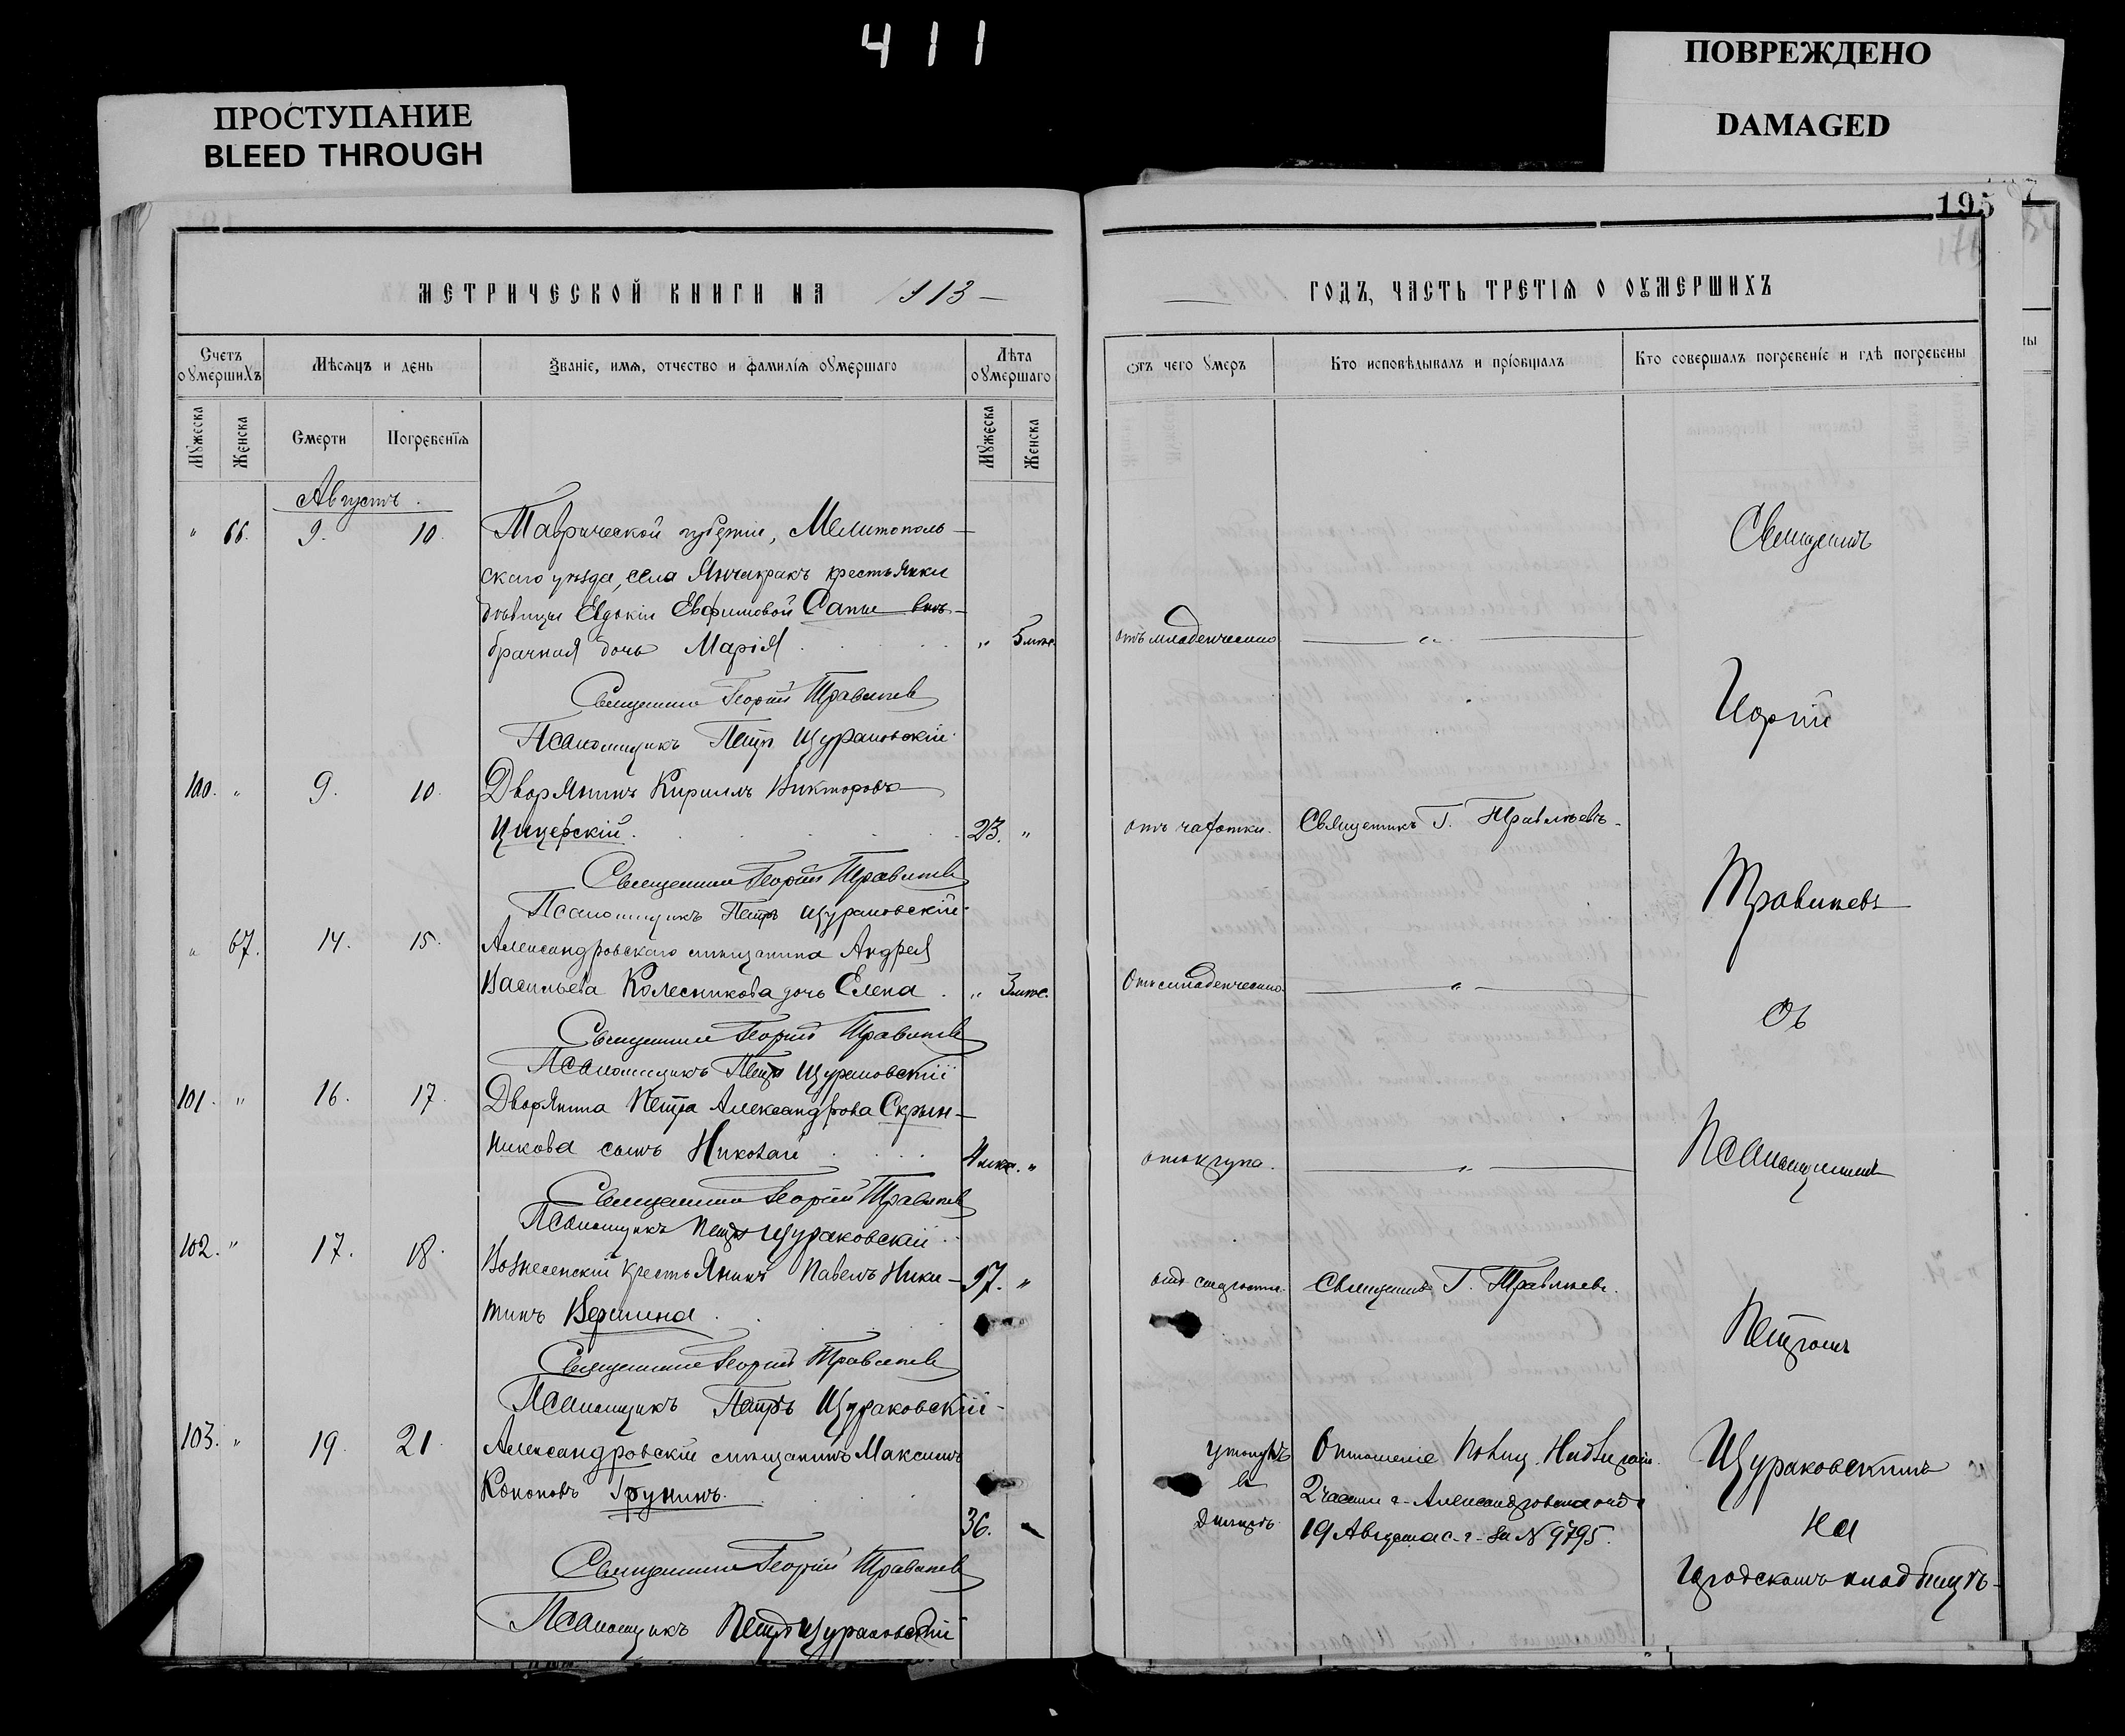 411
ПРОСТУПАНИЕ
BLEED THROUGH
ПОВРЕЖДЕНО
DAMAGED
195
МЕТРИЧЕСКОЙ КНИГИ НА 1913
Счетъ оумершихъ
Мѣсяцъ и день
Званіе, имя, отчество и фамилія оумершаго
Лѣта оумершаго
Мужеска
Женска
Смерти
Погребенія
Мужеска
Женска
Августъ.
" 66. 9. 10. Таврической губерніи, Мелитополь-
скаго уѣзда, села Янчакракъ крестьянки
дѣвицы Евдокіи Евфимовой Сапы внѣ-
брачная дочь Марія . " 5 мѣс.
Священникъ Георгій Травинев
Псаломщикъ Петръ Щураковскій
100. " 9. 10. Дворянинъ Кириллъ Викторовъ
Цицерскій. 23. "
Священникъ Георгій Травинев
Псаломщикъ Петръ Щураковскій
" 67. 14. 15. Александровскаго мѣщанина Андрея
Васильева Колесникова дочь Елена . " 3 мѣс.
Священникъ Георгій Травинев
Псаломщикъ Петръ Щураковскій
101. " 16. 17. Дворянина Петра Александрова Скрын-
никова сынъ Николай . 4 "
Священникъ Георгій Травинев
Псаломщикъ Петръ Щураковскій
102. " 17. 18. Вознесенскій крестьянинъ Павелъ Ники- 97. "
тинъ Вершина .
Священникъ Георгій Травинев
Псаломщикъ Петръ Щураковскій
103. " 19. 21. Александровскій мѣщанинъ Максимъ
Кононовъ Грунинъ. 36.
Священникъ Георгій Травинев
Псаломщикъ Петръ Щураковскій
ГОДЪ, ЧАСТЬ ТРЕТІЯ О ОУМЕРШИХЪ
Отъ чего умеръ
Кто исповѣдывалъ и пріобщалъ
Кто совершалъ погребеніе и гдѣ погребены
Священникъ
отъ младенческой "
Георгій
отъ чахотки. Священникъ Г. Травиневъ.
Травиневъ
Отъ младенческой "
Съ
Псаломщикомъ
отъ крупа. "
отъ старости. Священникъ Г. Травиневъ.
Петромъ
утонулъ Отношеніе Полиц. Надзират. Щураковскимъ
въ 2 части г. Александровска отъ на
Днѣпрѣ 19 Августа с. г. за № 9795.
городскомъ кладбищѣ.